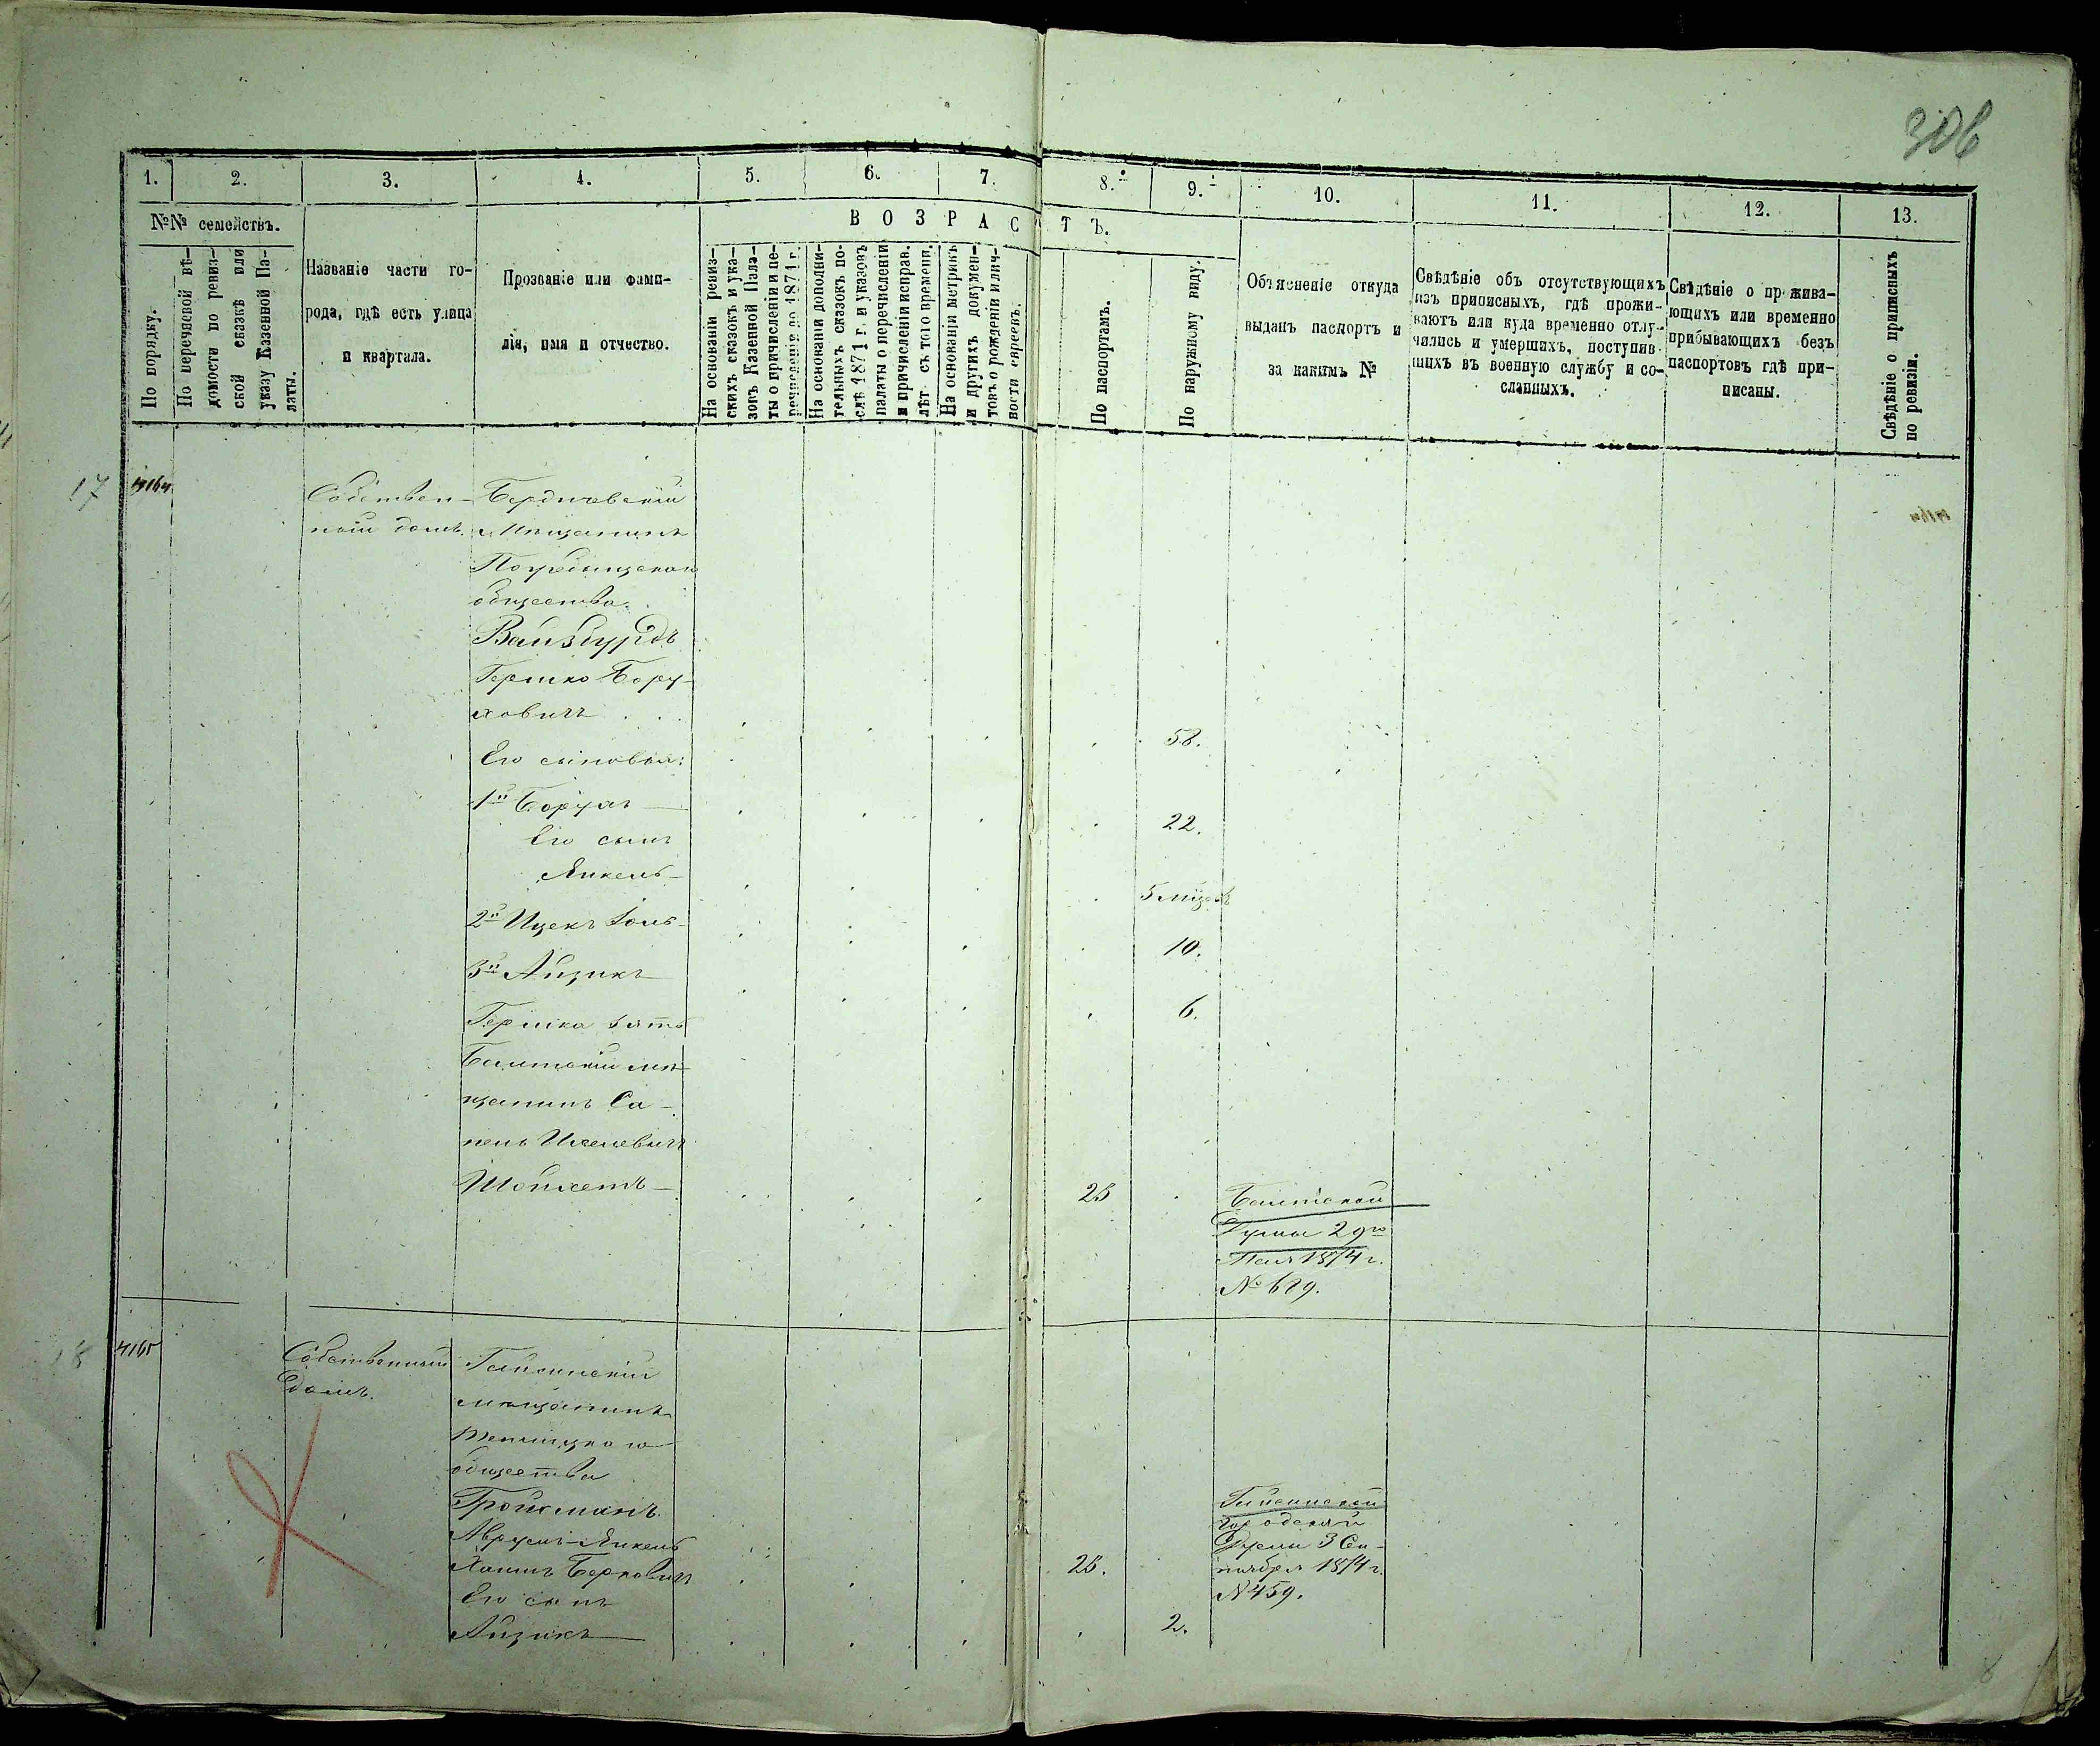 306
1.
2.
3.
4.
5.
6.
7.
8.
9.
10.
11.
12.
13.
№№ семействъ.
ВОЗРАСТЪ.
По порядку.
По перечневой вѣ-
домости по ревиз-
ской сказкѣ или
указу Казенной Па-
латы.
Названіе части го-
рода, гдѣ есть улица
и квартала.
Прозваніе или фами-
лія, имя и отчество.
На основаніи ревиз-
скихъ сказокъ и ука-
зовъ Казенной Пала-
ты о причисленіи и пе-
речисленіи до 1871 г.
На основаніи дополни-
тельныхъ сказокъ по-
слѣ 1871 г. и указовъ
палаты о перечисленіи
и причисленіи исправ.
лѣт съ того времени.
На основаніи метрикъ
и другихъ докумен-
товъ о рожденіи и лич-
ности евреевъ.
По паспортамъ.
По наружному виду.
Объясненіе откуда
выданъ паспортъ и
за какимъ №
Свѣдѣніе объ отсутствующихъ
изъ приписныхъ, гдѣ прожи-
ваютъ или куда временно отлу-
чились и умершихъ, поступив-
шихъ въ военную службу и со-
сланныхъ.
Свѣдѣніе о прожива-
ющихъ или временно
прибывающихъ безъ
паспортовъ гдѣ при-
писаны.
Свѣдѣніе о приписныхъ
по ревизіи.
17
Собствен-
ный домъ.
Бердичевскій
Мѣщанинъ
Погребыщскаго
общества.
Вайзбурдъ
Гершко Бору-
ховичъ
58.
Его сыновья:
1й Борухъ
22.
Его сынъ
Янкель
5 мѣсяц.
2й Ицекъ Іоль
10.
3й Айзикъ
6.
Гершка зять
Балтскій мѣ-
щанинъ Са-
Шойхетъ
25
Балтской
Думы 29го
1874 г.
18
Собственный
домъ.
Гайсинскій
мѣщанинъ
общества
Гройсманъ.
Аврумъ-Янкель
Хаимъ Берковичъ
25.
Гайсинской
городской
Думы 3 Сен-
тября 1874 г.
№ 459.
Его сынъ
Айзикъ
2.